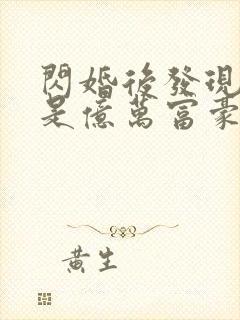 閃婚後發現
是億萬富豪
黃生